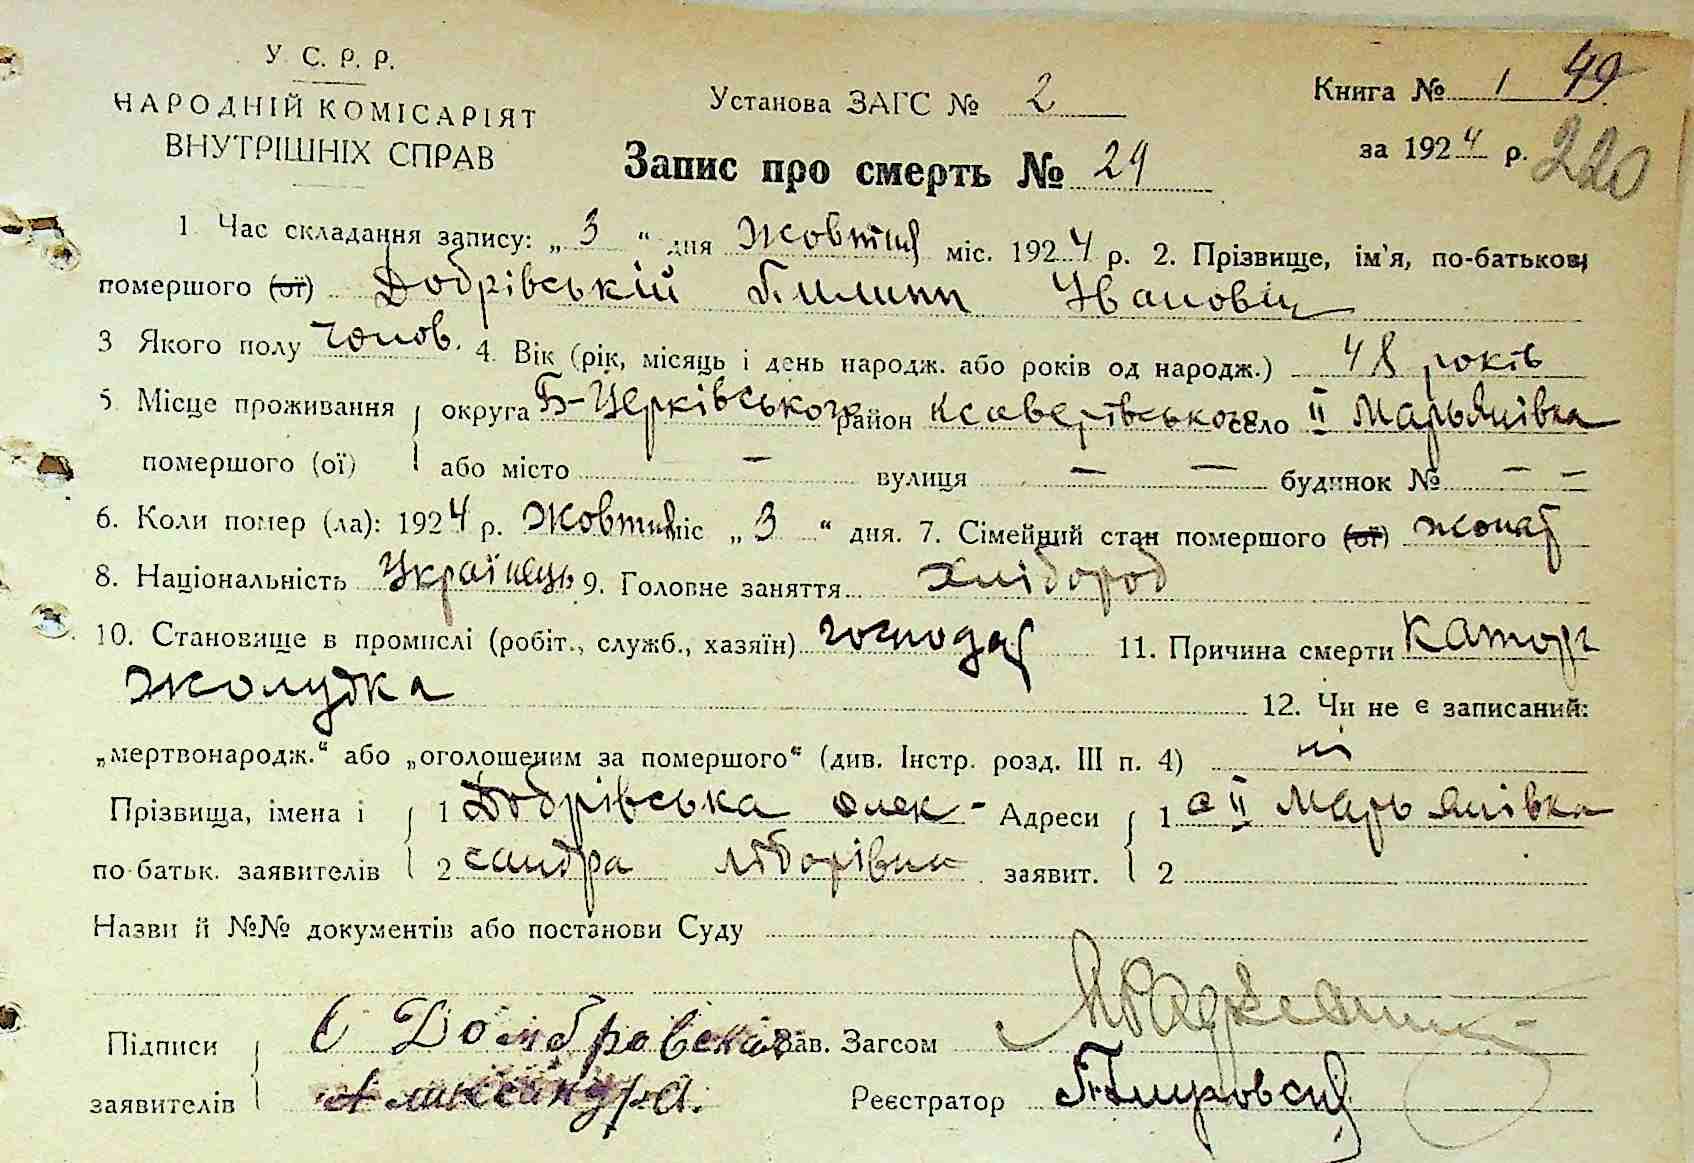 У. С. Р. Р.
НАРОДНІЙ КОМІСАРІЯТ
ВНУТРІШНІХ СПРАВ
Установа ЗАГС № 2
Запис про смерть № 29
Книга № 1 49
за 1924 р. 220
1. Час складання запису: „3“ дня Жовтня міс. 1924 р. 2. Прізвище, ім'я, по-батькові
помершого (ої) Добрівський Пилип Иванович
3 Якого полу чолов. 4. Вік (рік, місяць і день народж. або років од народж.) 48 років
5. Місце проживання округа Б-Церківського район Ксаверівського село II Марьянівка
помершого (ої) або місто — вулиця — — будинок № — —
6. Коли помер (ла): 1924 р. Жовтня міс „3“ дня. 7. Сімейний стан помершого (ої) жонат
8. Національність Українець 9. Головне заняття хлібороб
10. Становище в промислі (робіт., служб., хазяїн) господар 11. Причина смерти
жолудка 12. Чи не є записаний:
„мертвонародж.“ або „оголошеним за помершого“ (див. Інстр. розд. III п. 4) ні
Прізвища, імена і 1 Добрівська Олек- Адреси 1 с II Марьянівка
по-батьк. заявителів 2 сандра заявит. 2
Назви й №№ документів або постанови Суду
Підписи Домбровская Зав. Загсом
заявителів Реєстратор